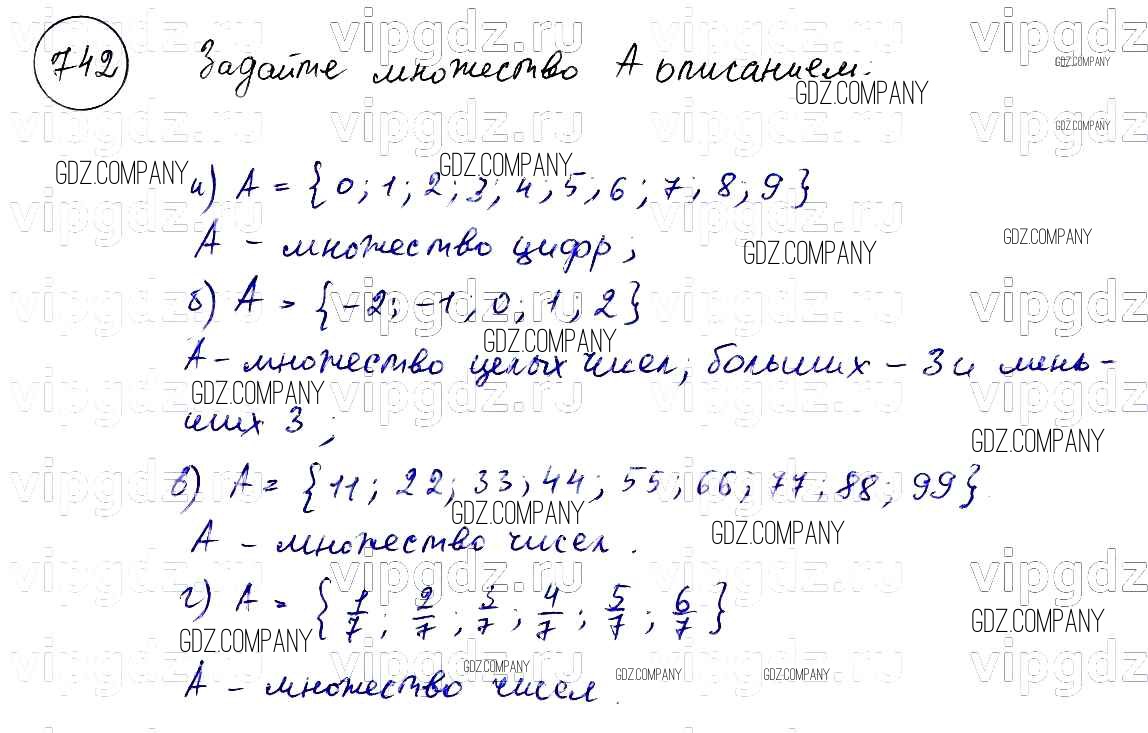 742 Задайте множество А описанием:
а) А = {0; 1; 2; 3; 4; 5; 6; 7; 8; 9}
А - множество цифр;
б) А = {-2; -1; 0; 1; 2}
А - множество целых чисел, больших - 3 и мень-
ших 3;
в) А = {11; 22; 33; 44; 55; 66; 77; 88; 99}
А - множество чисел.
г) А = {1/7; 2/7; 3/7; 4/7; 5/7; 6/7}
А - множество чисел.
vipgdz.ru
GDZ.COMPANY